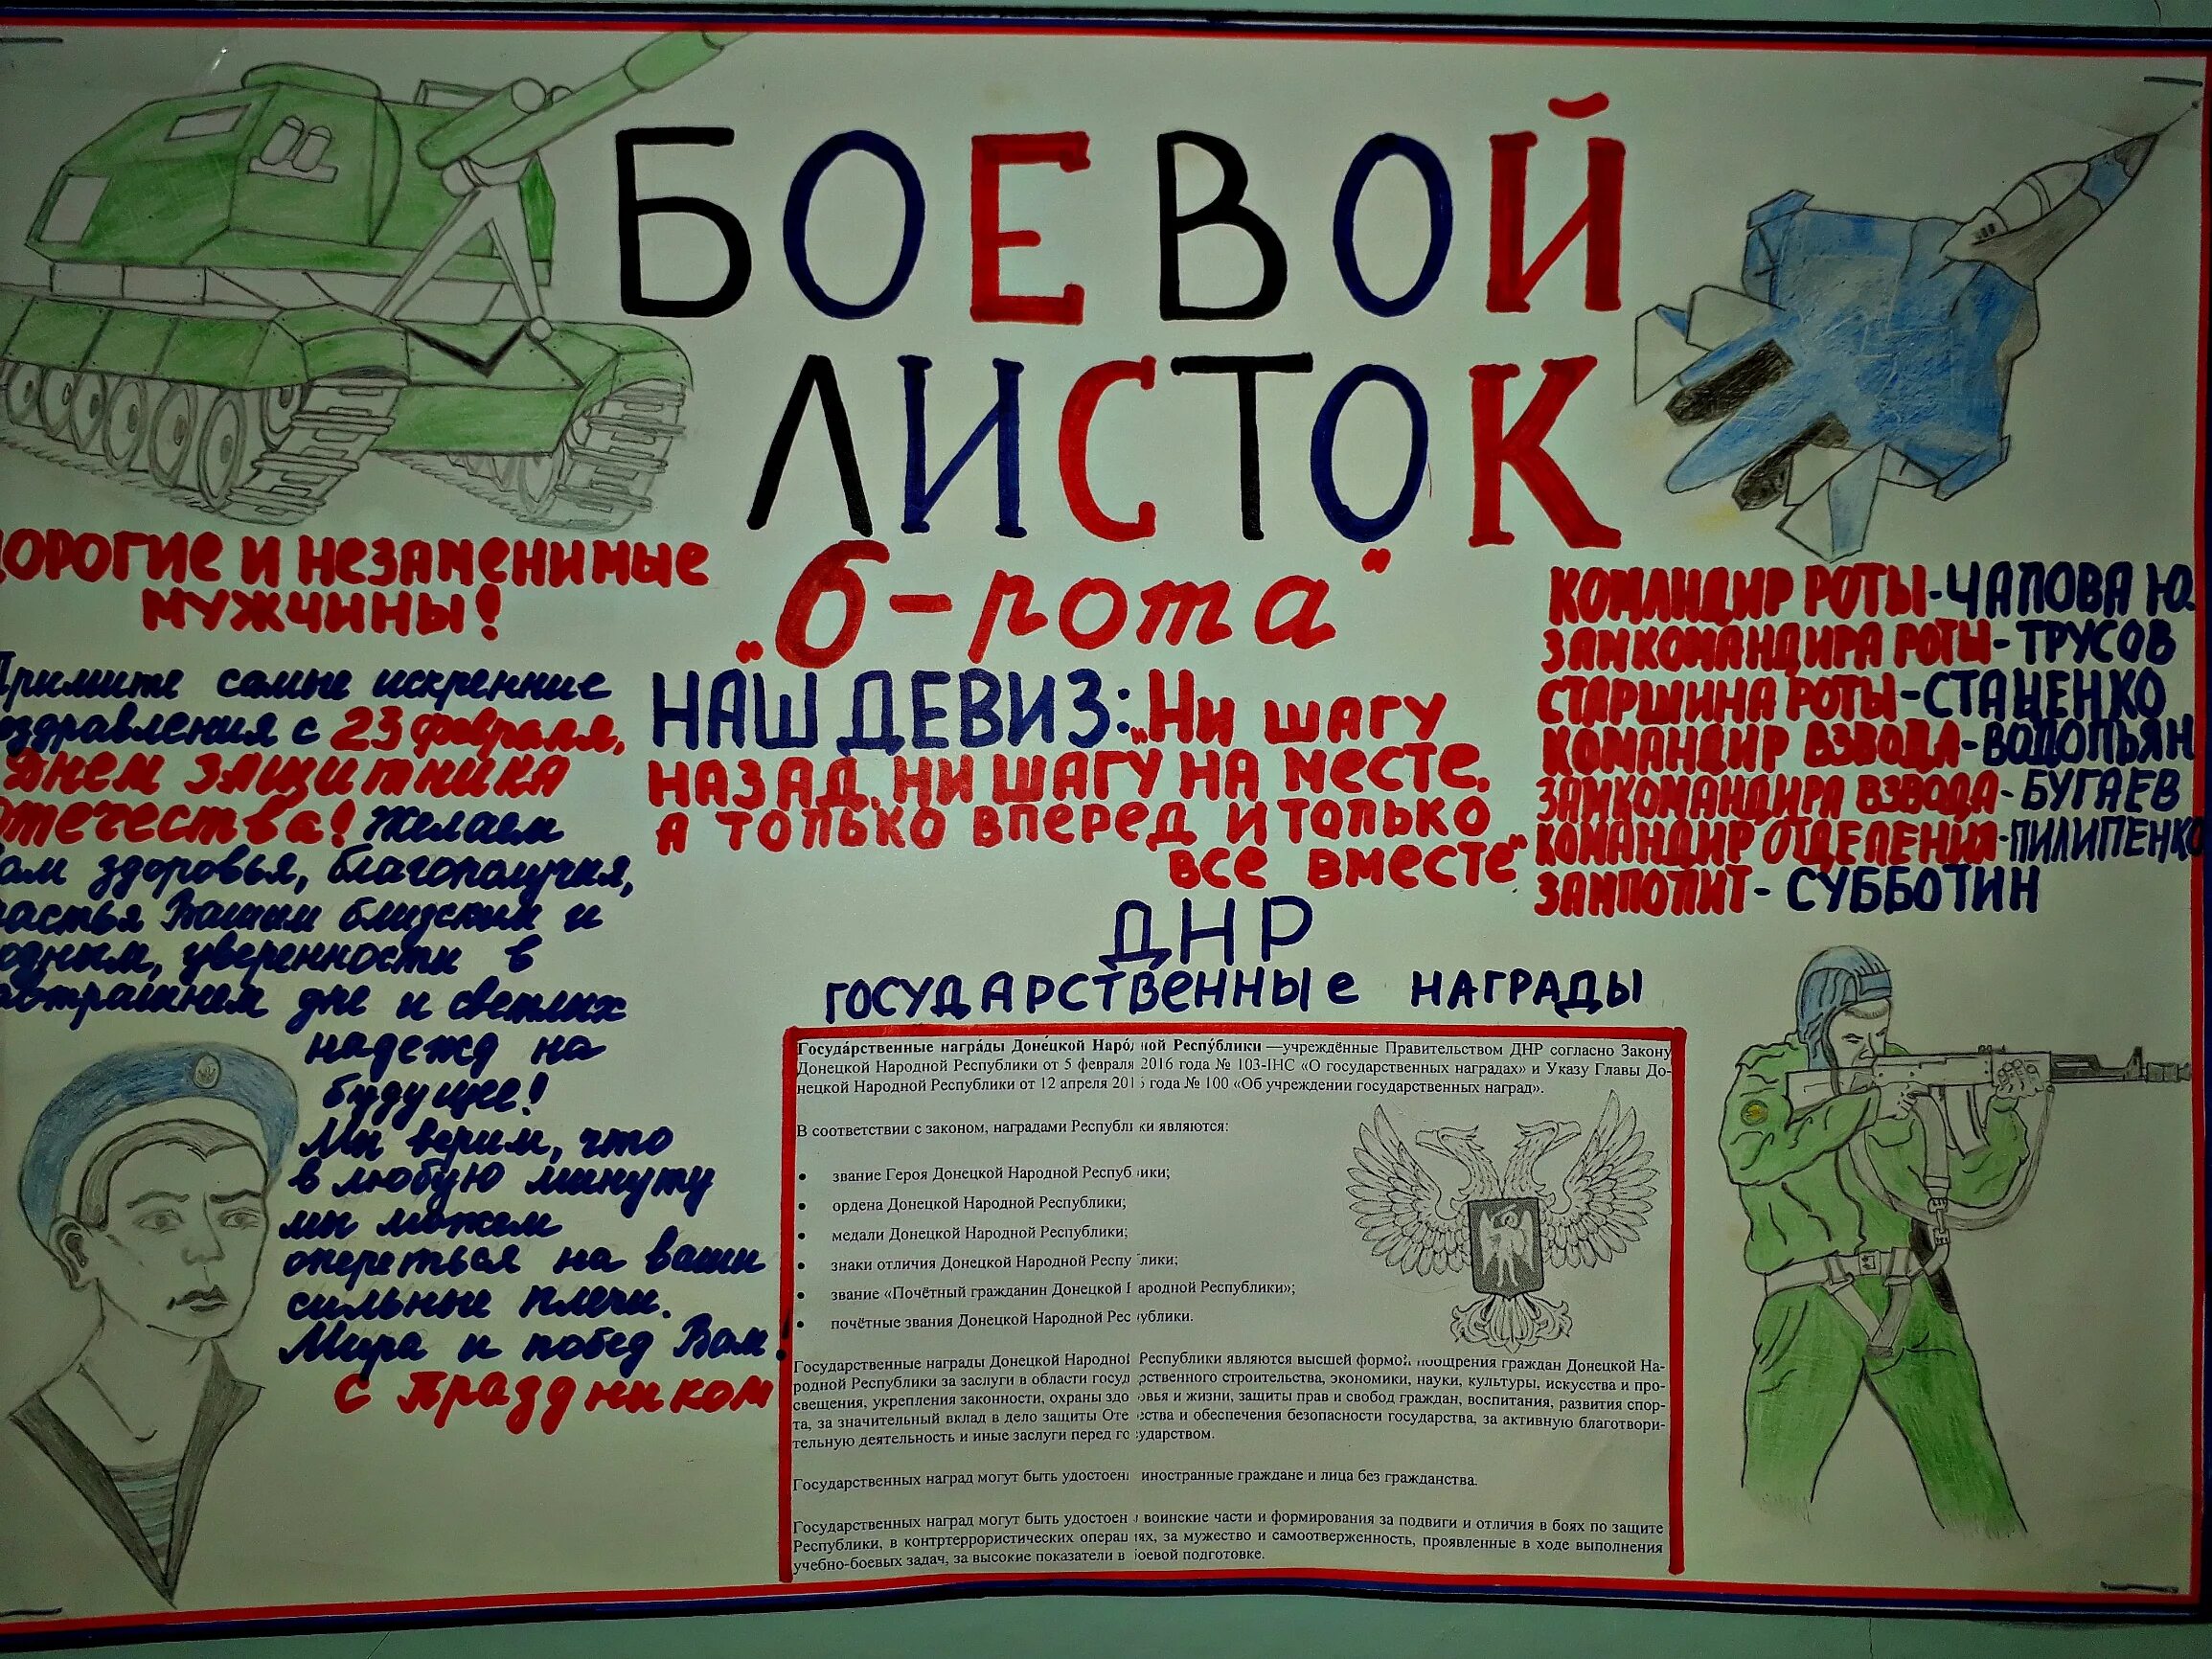 БОЕВОЙ
ЛИСТОК
"6-рота"
ДОРОГИЕ И НЕЗАМЕНИМЫЕ
МУЖЧИНЫ!
Примите самые искренние
поздравления с 23 февраля,
Днем защитника
Отечества! Желаем
Вам здоровья, благополучия,
счастья Вашим близким и
родным, уверенности в
завтрашнем дне и светлых
надежд на
будущее!
Мы верим, что
в любую минуту
мы можем
опереться на ваши
сильные плечи.
Мира и побед Вам!
С праздником
НАШ ДЕВИЗ: „Ни шагу
назад, ни шагу на месте,
а только вперед и только
все вместе"
КОМАНДИР РОТЫ-ЧАПОВА Ю.
ЗАМКОМАНДИРА РОТЫ-ТРУСОВ
СТАРШИНА РОТЫ-СТАЦЕНКО
КОМАНДИР ВЗВОДА-ВОДОПЬЯН
ЗАМКОМАНДИРА ВЗВОДА-БУГАЕВ
КОМАНДИР ОТДЕЛЕНИЯ-ПИЛИПЕНКО
ЗАМПОЛИТ-СУББОТИН
ДНР
ГОСУДАРСТВЕННЫЕ НАГРАДЫ
Госуда́рственные награ́ды Доне́цкой Наро́дной Респу́блики —учреждённые Правительством ДНР согласно Закону
Донецкой Народной Республики от 5 февраля 2016 года № 103-IНС «О государственных наградах» и Указу Главы До-
нецкой Народной Республики от 12 апреля 2015 года № 100 «Об учреждении государственных наград».
В соответствии с законом, наградами Республики являются:
• звание Героя Донецкой Народной Республики;
• ордена Донецкой Народной Республики;
• медали Донецкой Народной Республики;
• знаки отличия Донецкой Народной Республики;
• звание «Почётный гражданин Донецкой Народной Республики»;
• почётные звания Донецкой Народной Республики.
Государственные награды Донецкой Народной Республики являются высшей формой поощрения граждан Донецкой На-
родной Республики за заслуги в области государственного строительства, экономики, науки, культуры, искусства и про-
свещения, укрепления законности, охраны здоровья и жизни, защиты прав и свобод граждан, воспитания, развития спор-
та, за значительный вклад в дело защиты Отечества и обеспечения безопасности государства, за активную благотвори-
тельную деятельность и иные заслуги перед государством.
Государственных наград могут быть удостоены иностранные граждане и лица без гражданства.
Государственных наград могут быть удостоены воинские части и формирования за подвиги и отличия в боях по защите
Республики, в контртеррористических операциях, за мужество и самоотверженность, проявленные в ходе выполнения
учебно-боевых задач, за высокие показатели в боевой подготовке.